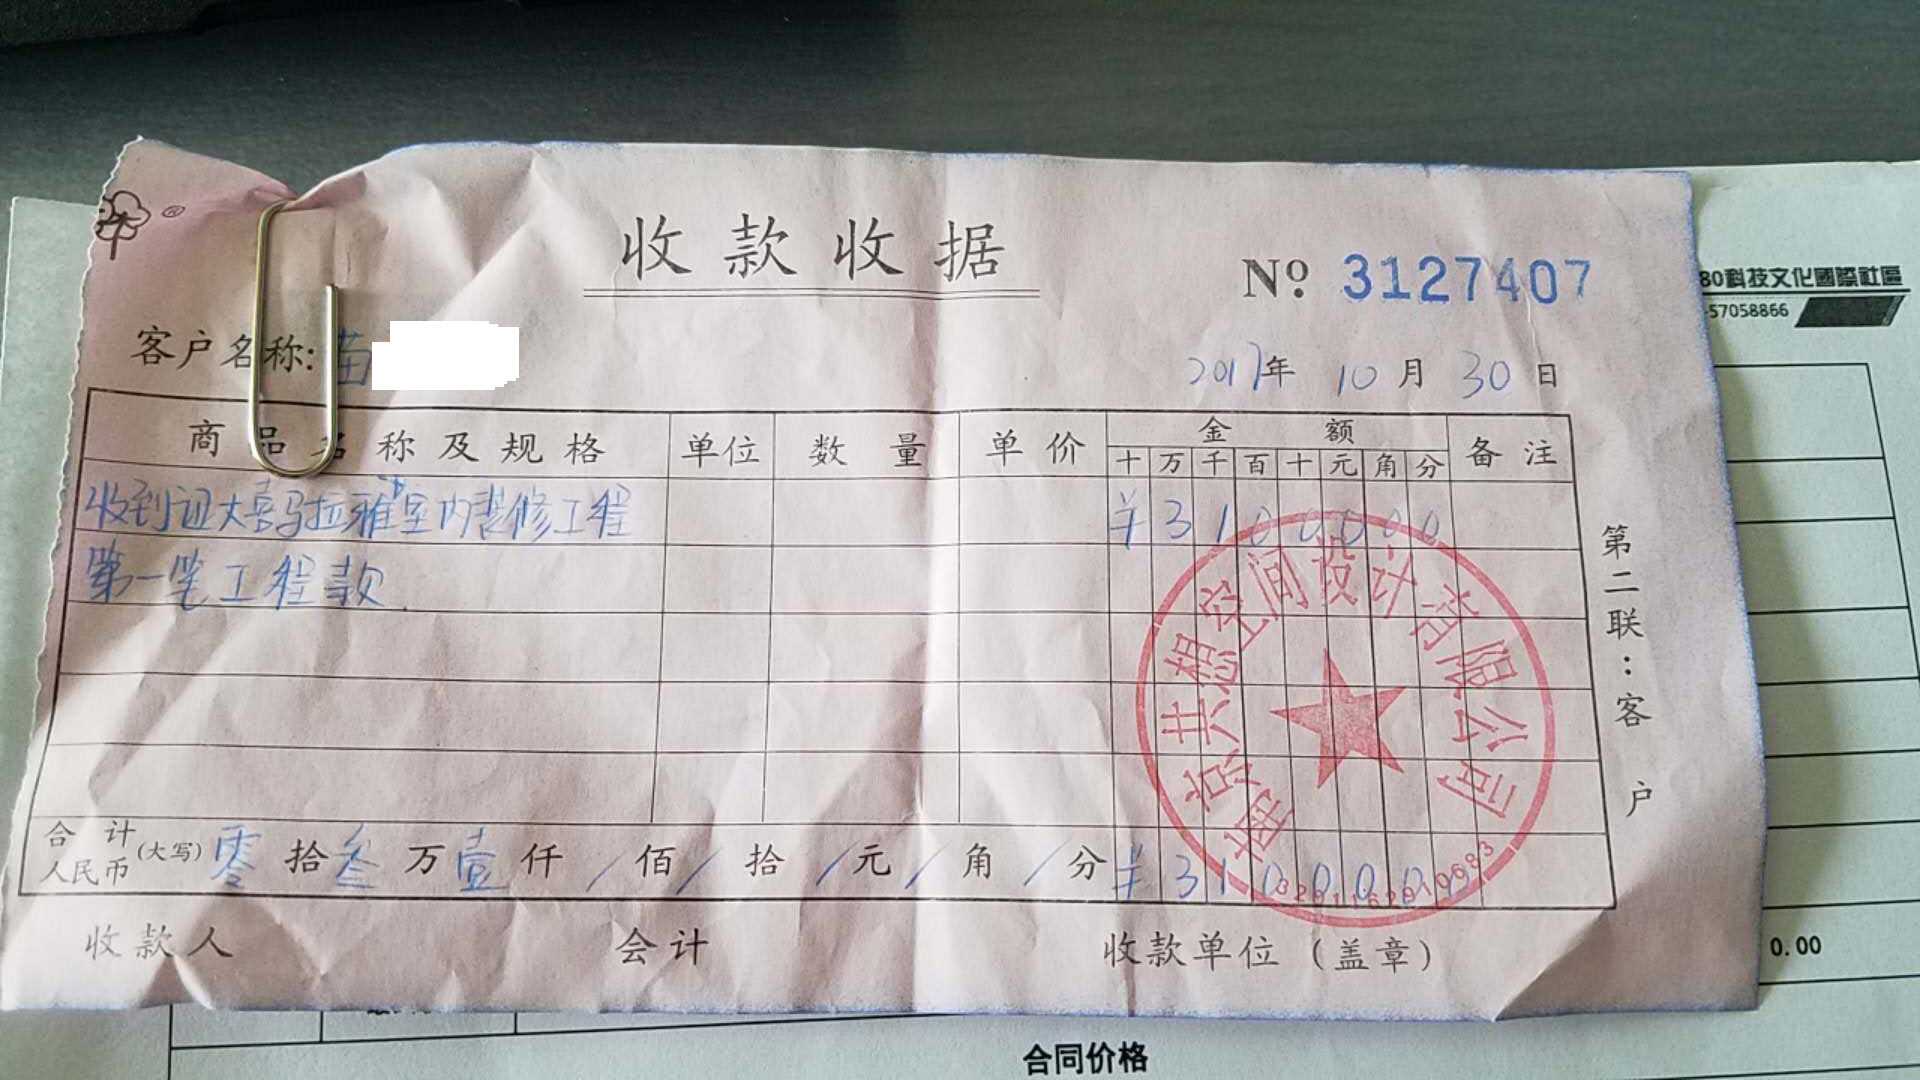 ®
收款收据
Nº 3127407
80科技文化國際社區
-57058866
客户名称: 苗
2017年 10月 30日
商品名称及规格 单位 数量 单价 金额 备注
十 万 千 百 十 元 角 分
收到证大喜马拉雅室内装修工程 ¥3100000
第一笔工程款.
第二联：客户
南京共想空间设计有限公司
合计人民币(大写) 零拾叁万壹仟/佰/拾/元/角/分 ¥3100000
收款人 会计 收款单位（盖章）
0.00
合同价格